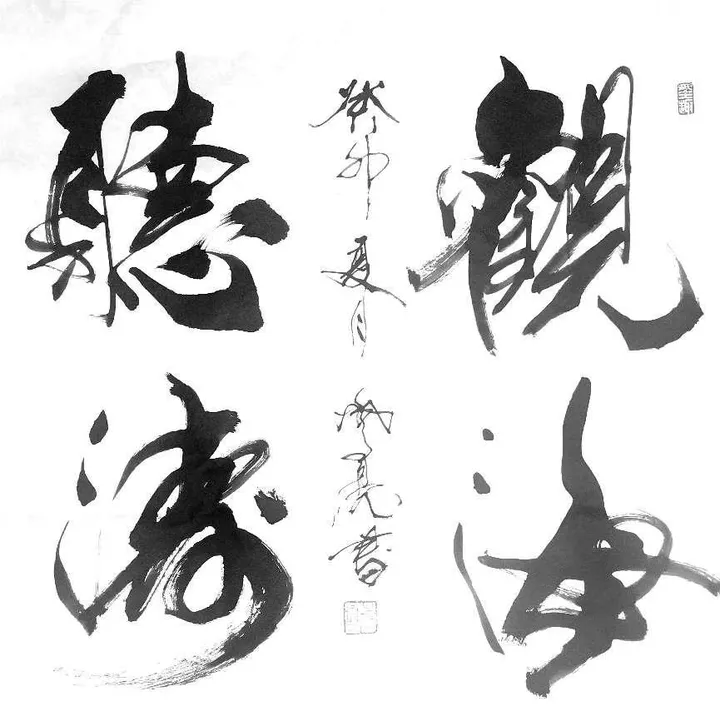 觀海
聽濤
癸卯夏月
亮書